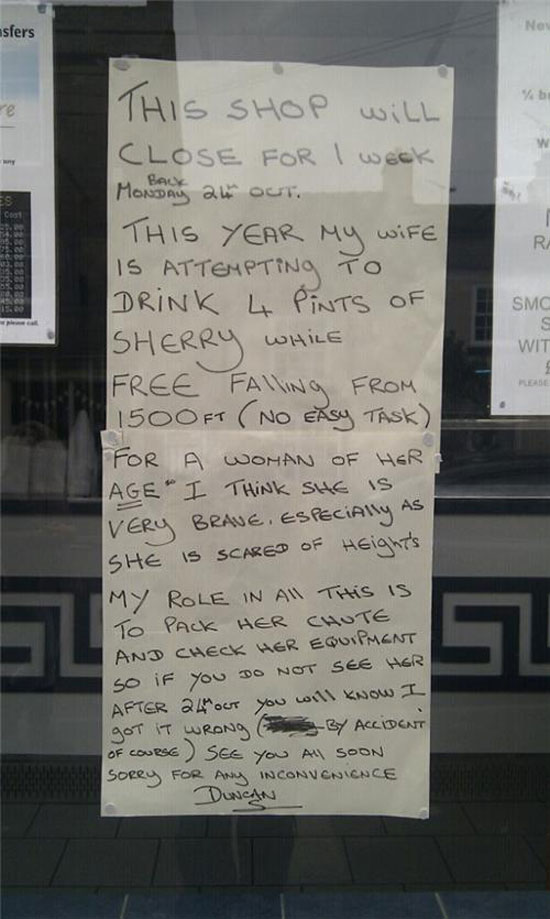 THIS SHOP WILL
CLOSE FOR 1 WEEK
BACK
MONDAY 24th OCT.
THIS YEAR MY WIFE
IS ATTEMPTING TO
DRINK 4 PINTS OF
SHERRY WHILE
FREE FALLING FROM
1500FT (NO EASY TASK)
FOR A WOMAN OF HER
AGE" I THINK SHE IS
VERY BRAVE, ESPECIALLY AS
SHE IS SCARED OF HEIGHTS
MY ROLE IN ALL THIS IS
TO PACK HER CHUTE
AND CHECK HER EQUIPMENT
SO IF YOU DO NOT SEE HER
AFTER 24th OCT YOU WILL KNOW I
GOT IT WRONG (BY ACCIDENT
OF COURSE) SEE YOU ALL SOON
SORRY FOR ANY INCONVENIENCE
DUNCAN
sfers
re
any
ES
Cost
please call.
New
W
RA
SMO
S
WIT
£
PLEASE